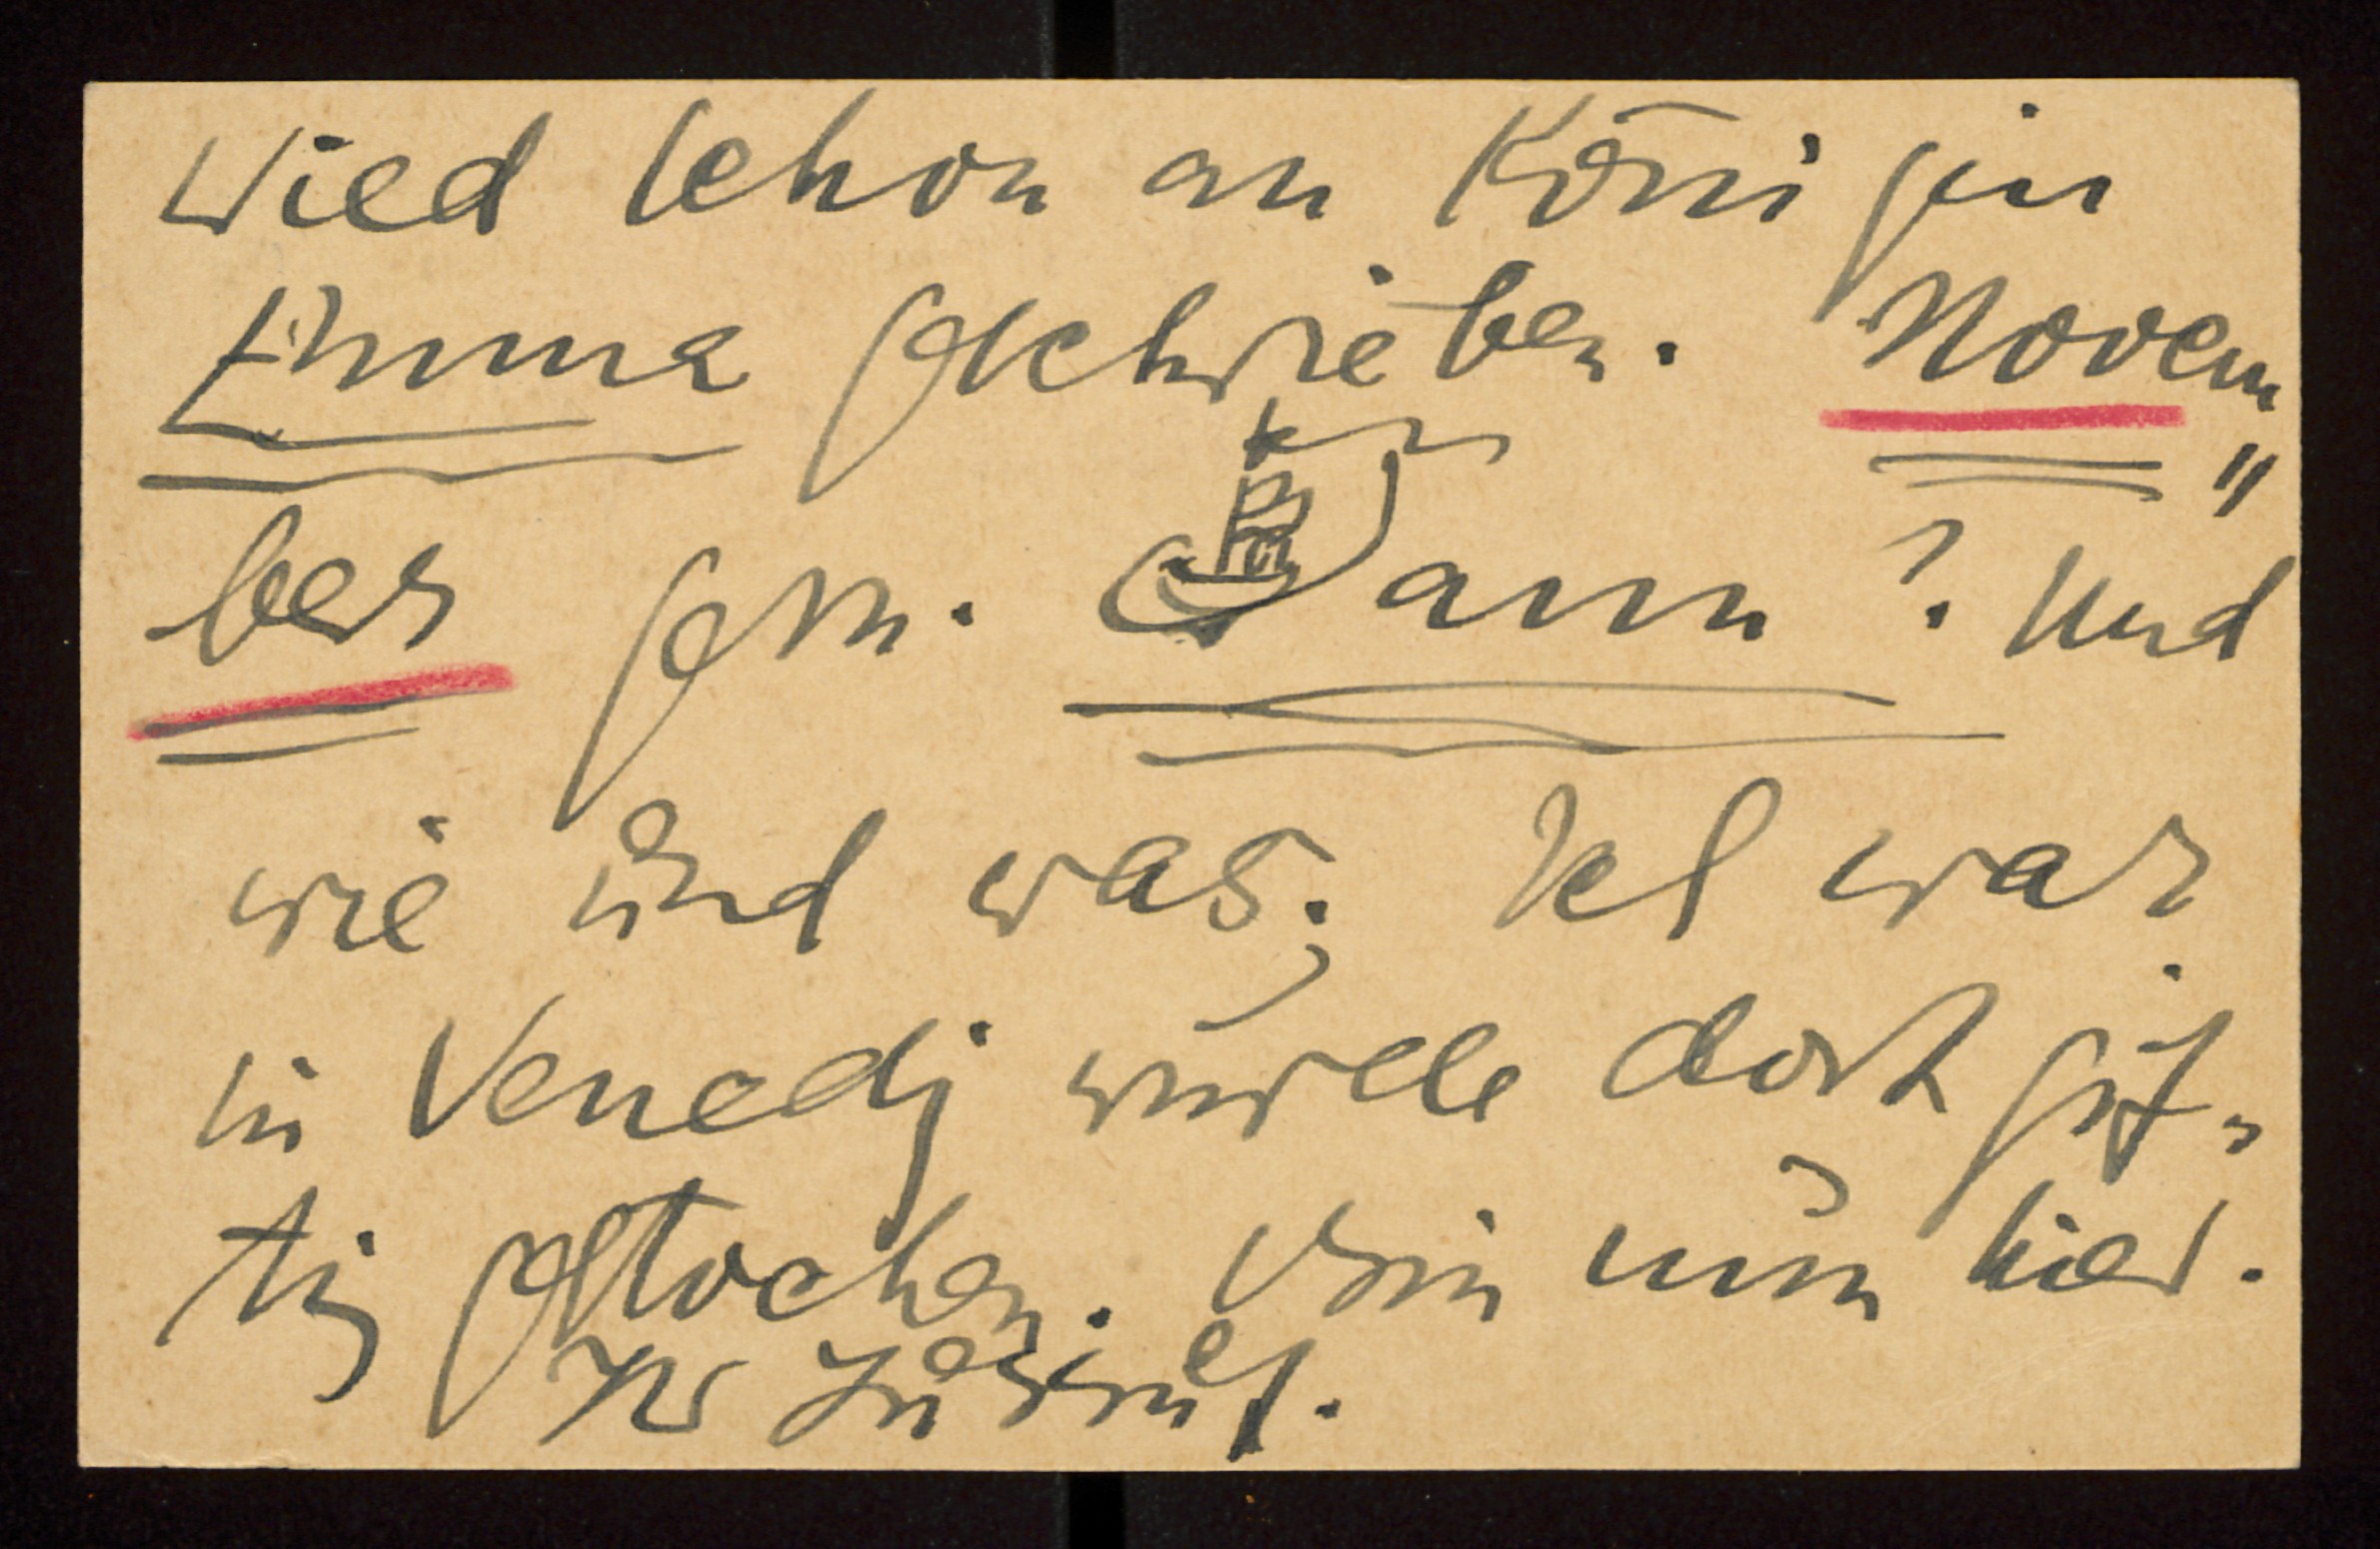 Wied schon an Königin
Emma geschrieben. Novem"
ber gern. Wann? Und
wie und was; Ich war
in Venedi wurde dort gif-
tig gestochen. Bin nun hier.
Ihr Jussuf.